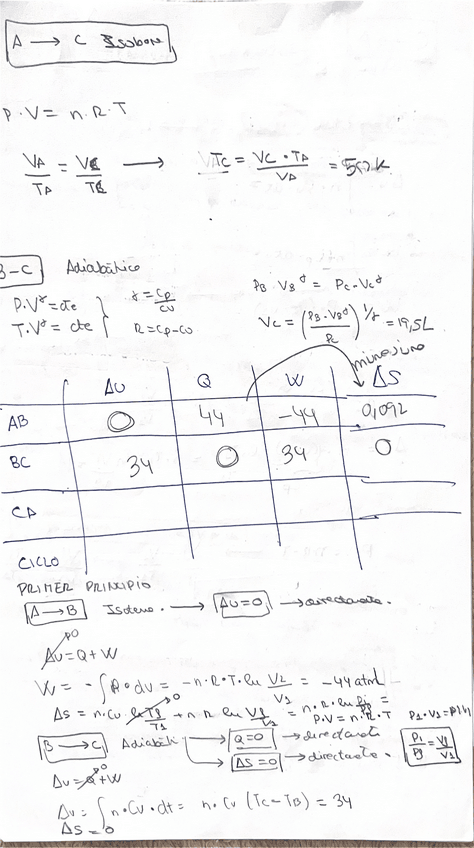 A → C Isobara
P·V = n·R·T
VA/TA = VC/TC → TC = VC·TA/VA =
B-C Adiabático
P·V^γ = cte
T·V^γ = cte
γ = Cp/Cv
R = Cp-Cv
PB VB^γ = PC·VC^γ
VC = (PB·VB^γ/PC)^1/γ = 19,5L
ΔU Q W ΔS
AB 0 44 -44 0,092
BC 34 0 34 0
CA
CICLO
PRIMER PRINCIPIO
A → B Isotermo. → ΔU=0 → directamente.
ΔU = Q + W 0
W = -∫P·dV = -n·R·T·ln V2/V1 = -44 atm L
ΔS = n·Cv ln Tf/Ti 0 + n R ln Vf/Vi =
P·V = n·R·T
Pi/Pf = Vf/Vi
B → C Adiabáti Q=0 → directamente
ΔS=0 → directamente.
ΔU = Q + W 0
ΔU = ∫n·Cv·dt = n·Cv (TC-TB) = 34
ΔS = 0